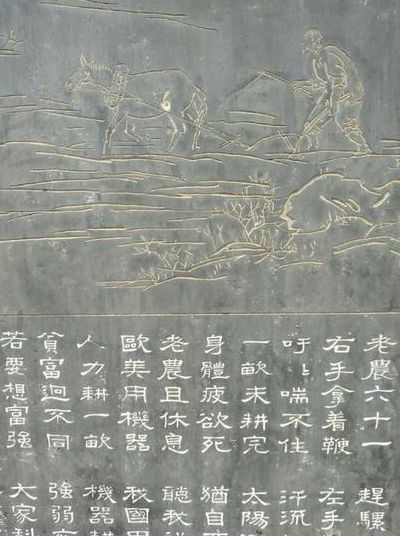 老農六十一 趕騾
右手拿着鞭 左手
吁〻喘不住 汗流
一畝未耕完 太陽
身體疲欲死 猶自
老農且休息 聽我
歐美用機器 我國用
人力耕一畝 機器耕
貧富迥不同 強弱
若要想富強 大家科